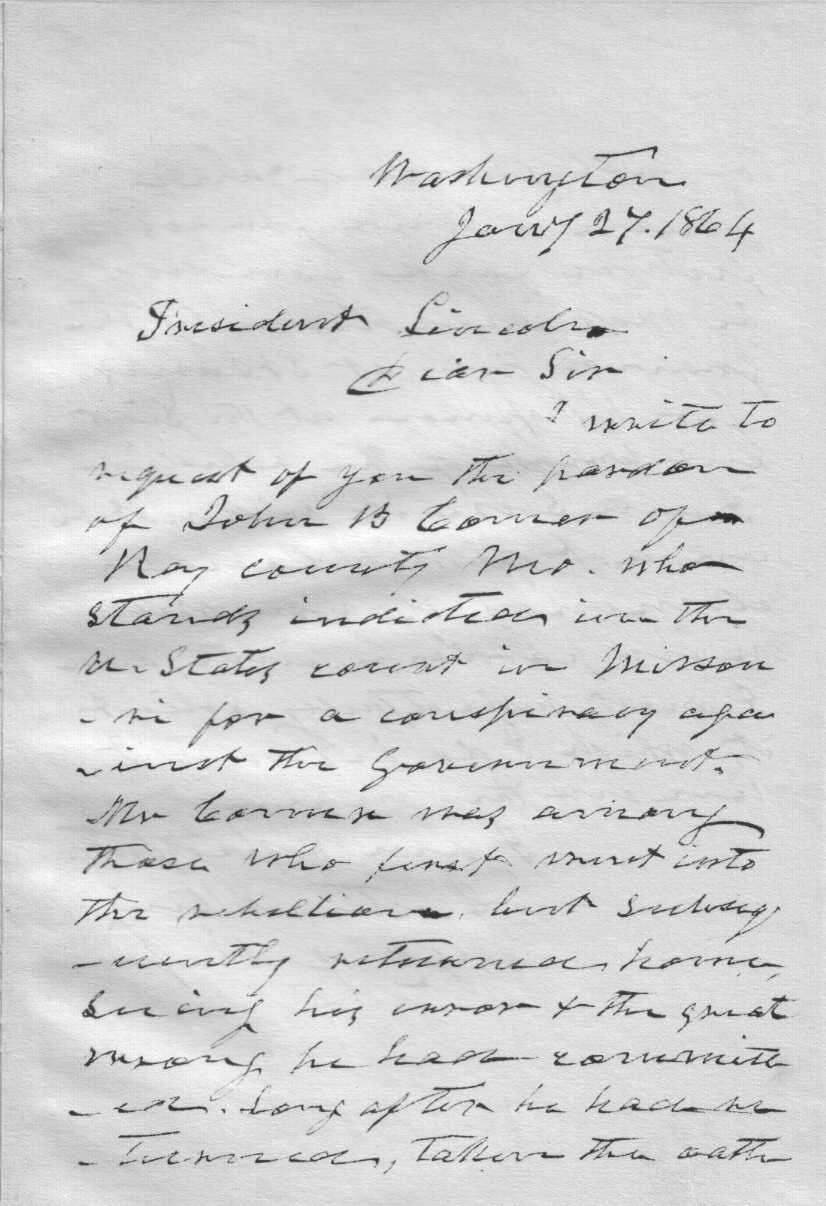 Washington
Jany 27. 1864
President Lincoln
Dear Sir
I write to
request of you the pardon
of John B Comer of
Ray county Mo. who
stands indicted in the
U. States court in Missou
-ri for a conspiracy aga
-inst the Government.
Mr Comer was among
those who first went into
the rebellion, but subseq
-uently returned home,
seeing his error & the great
wrong he had committ
-ed. Long after he had re
-turned, taken the oath